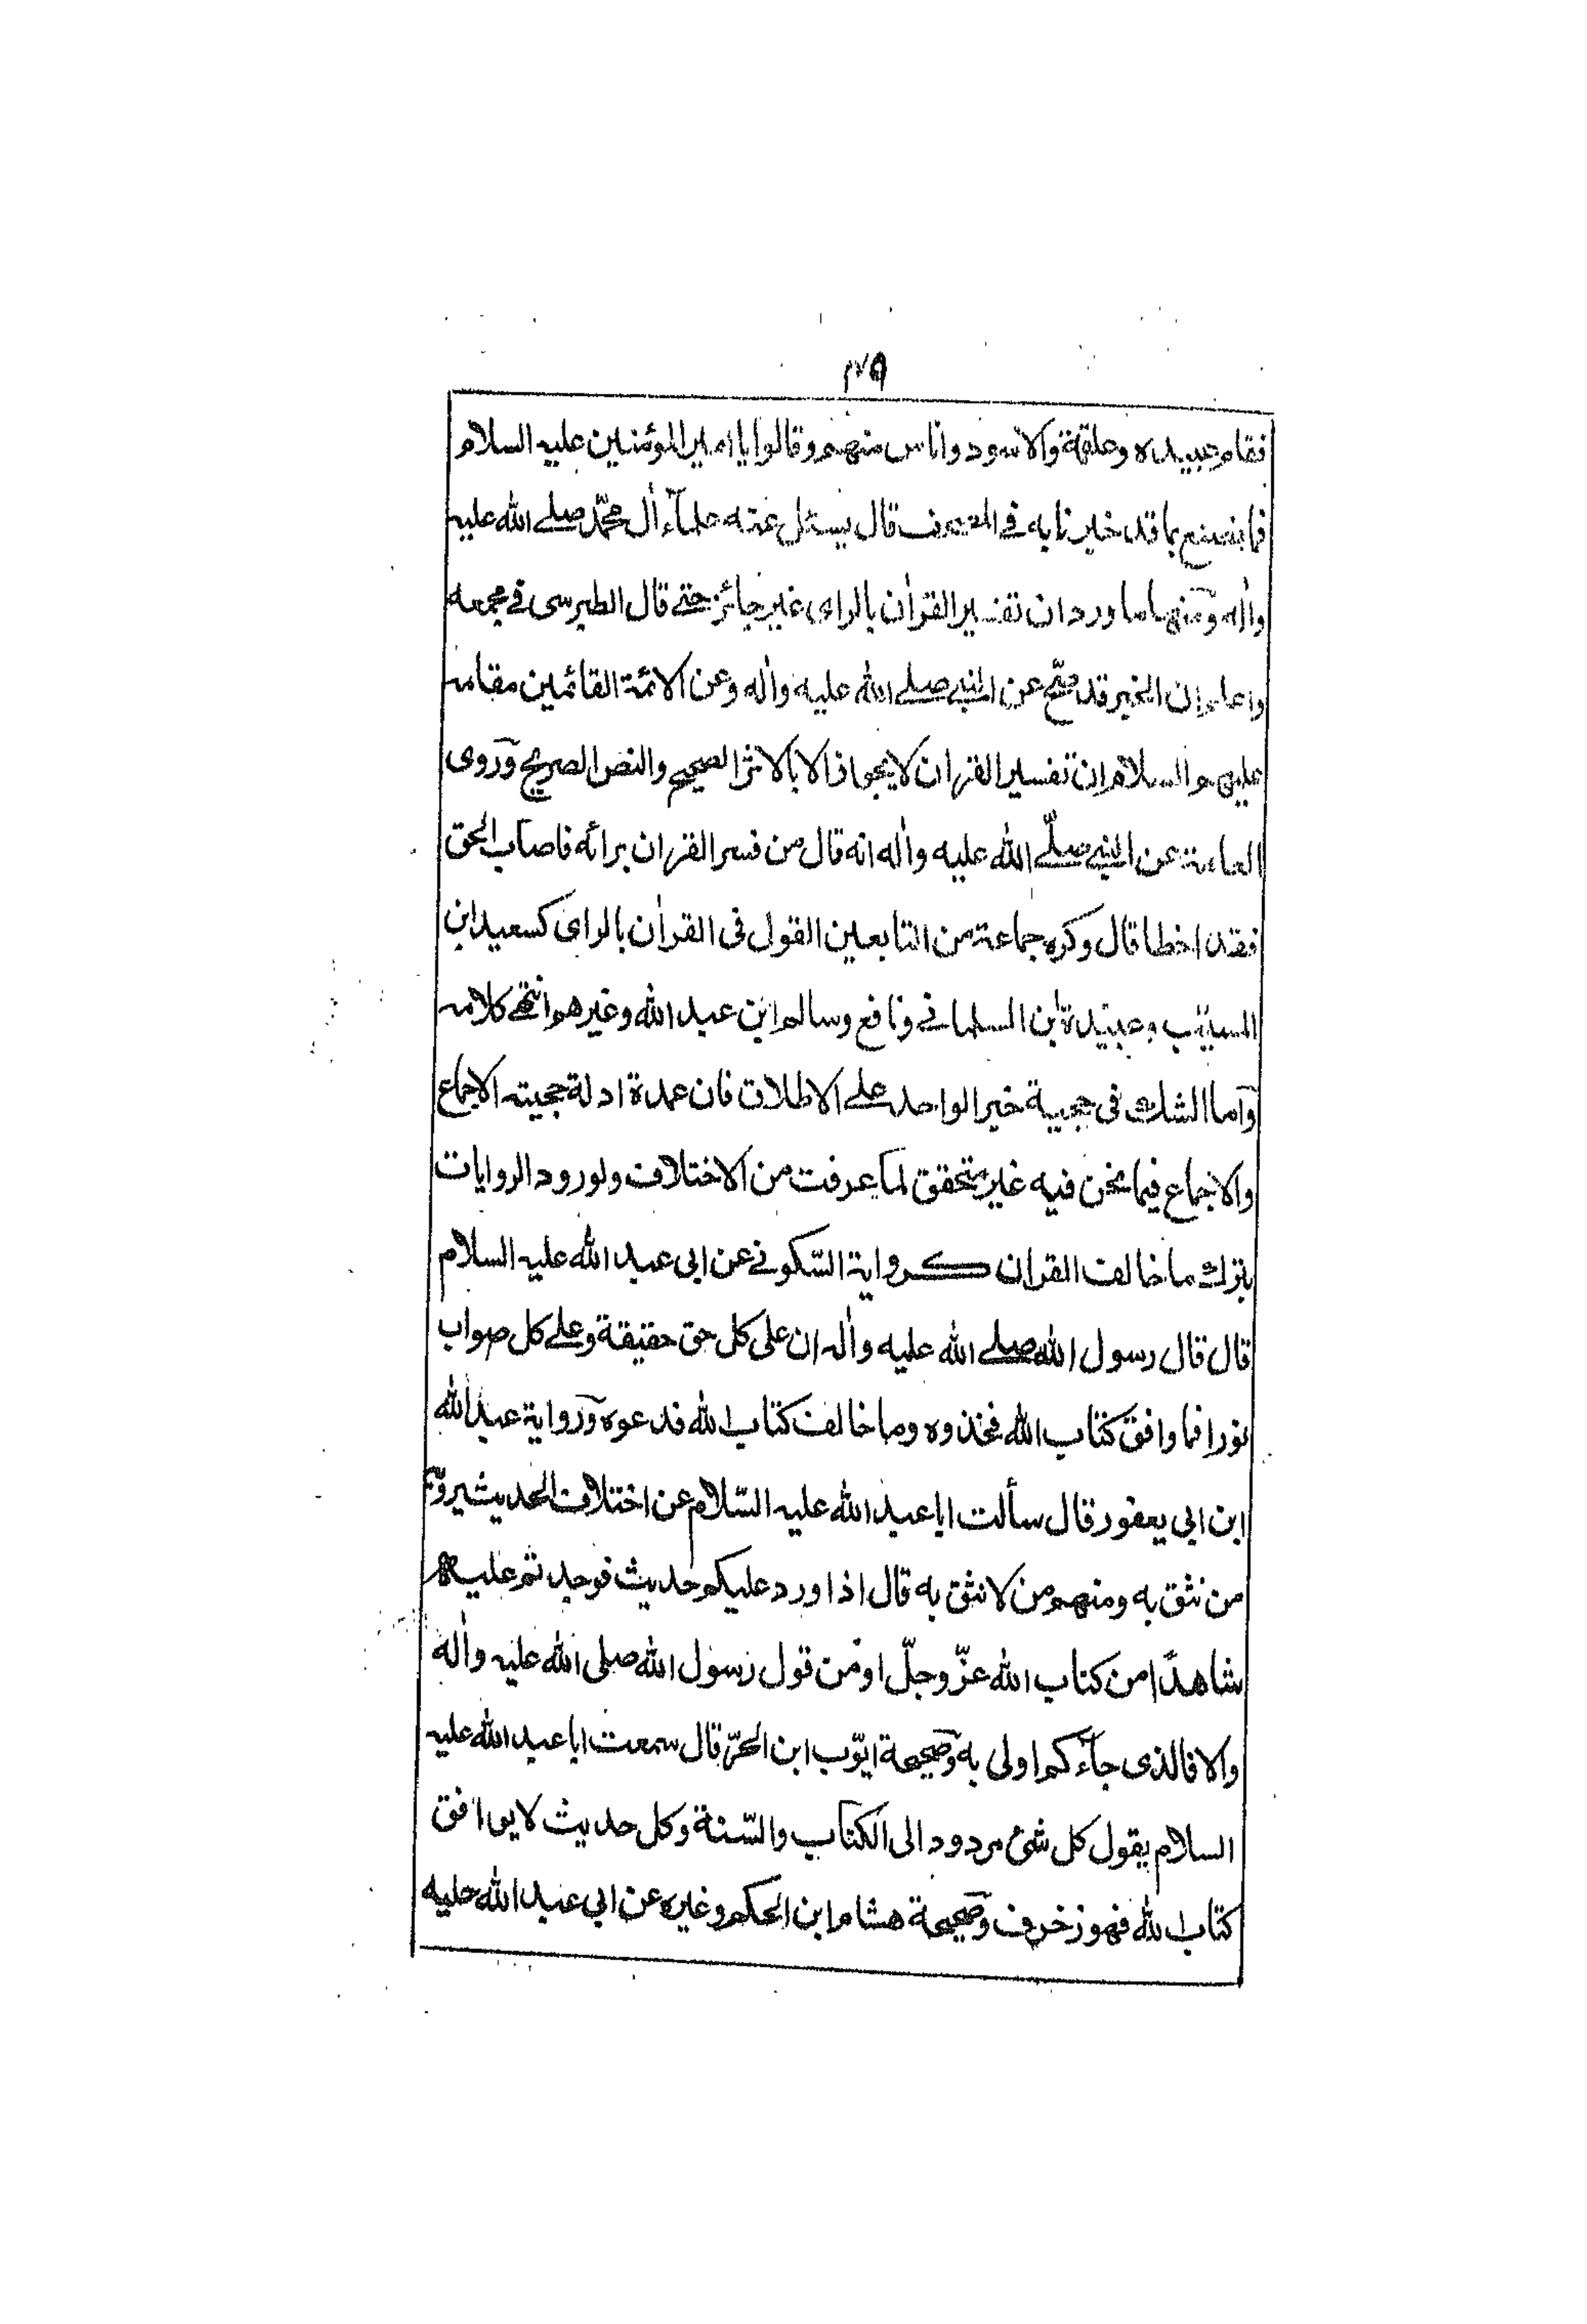 فقام عبيده وعلقمة والاسود واناس منهم وقالوا يا امير المؤمنين عليه السلام
فما نصنع بما قد خبرنا به في المصحف قال يسئل عنه علمآء اٰل محمّد صلے الله عليه
واٰله ومنها ما ورد ان تفسير القراٰن بالراى غير جائز حتے قال الطبرسى فے مجمعه
واعلم ان الخبر قد صحّ عن النبے صلے الله عليه واٰله وعن الائمة القائمين مقامه
عليهم السلام ان تفسير القران لا يجوز الا بالاثر الصحيح والنص الصريح وروى
العامة عن النبے صلّے الله عليه واٰله انه قال من فسر القران برائه فاصاب الحق
فقد اخطا قال وكره جماعة من التابعين القول فى القراٰن بالراى كسعيد ابن
المسيّب وعبيدة ابن السلمانے ونافع وسالم ابن عبد الله وغيرهم انتهے كلامه
واما الشك فى حجية خبر الواحد علے الاطلاق فان عمدة ادلة حجيته الاجماع
والاجماع فيما نحن فيه غير متحقق لما عرفت من الاختلاف ولورود الروايات
بترك ما خالف القران كرواية السّكونے عن ابى عبد الله عليه السلام
قال قال رسول الله صلے الله عليه واٰله ان على كل حق حقيقة وعلے كل صواب
نورا فما وافق كتاب الله فخذوه وما خالف كتاب الله فدعوه ورواية عبد الله
ابن ابى يعفور قال سألت ابا عبد الله عليه السّلام عن اختلاف الحديث يرويه
من نثق به ومنهم من لا نثق به قال اذا ورد عليكم حديث فوجدتم عليه
شاهدًا من كتاب الله عزّ وجلّ او من قول رسول الله صلى الله عليه واٰله
والا فالذى جآءكم اولى به وصحيحة ايّوب ابن الحرّ قال سمعت ابا عبد الله عليه
السلام يقول كل شئ مردود الى الكتاب والسّنة وكل حديث لا يوافق
كتاب الله فهو زخرف وصحيحة هشام ابن الحكم وغيره عن ابى عبد الله عليه